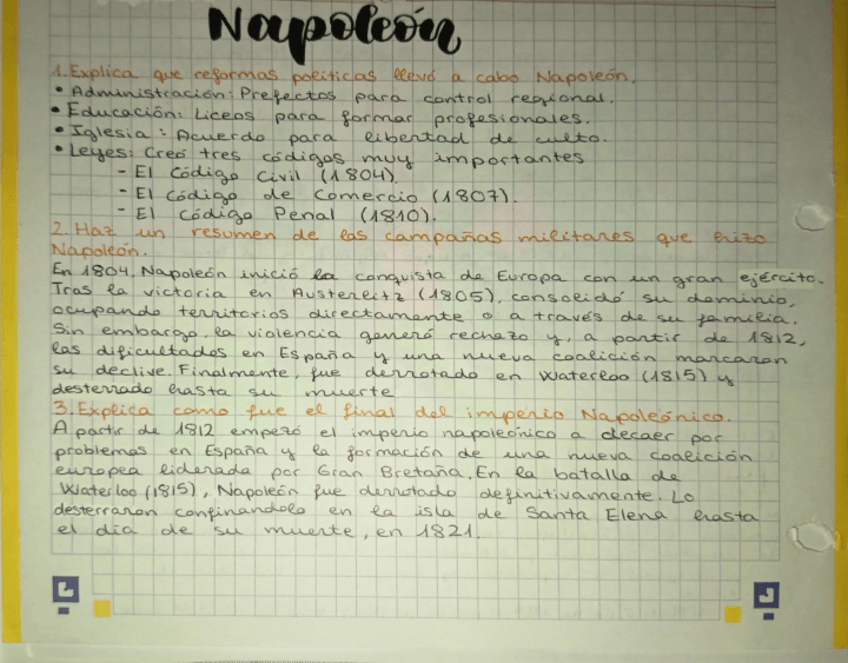 Napoleón
1. Explica que reformas políticas llevó a cabo Napoleón.
• Administración: Prefectos para control regional.
• Educación: Liceos para formar profesionales.
• Iglesia: Acuerdo para libertad de culto.
• Leyes: Creó tres códigos muy importantes
- El Código Civil (1804)
- El Código de Comercio (1807).
- El Código Penal (1810).
2. Haz un resumen de las campañas militares que hizo
Napoleón.
En 1804, Napoleón inició la conquista de Europa con un gran ejército.
Tras la victoria en Austerlitz (1805), consolidó su dominio,
ocupando territorios directamente o a través de su familia.
Sin embargo, la violencia generó rechazo y, a partir de 1812,
las dificultades en España y una nueva coalición marcaron
su declive. Finalmente, fue derrotado en Waterloo (1815) y
desterrado hasta su muerte
3. Explica como fue el final del imperio Napoleónico.
A partir de 1812 empezó el imperio napoleónico a decaer por
problemas en España y la formación de una nueva coalición
europea liderada por Gran Bretaña. En la batalla de
Waterloo (1815), Napoleón fue derrotado definitivamente. Lo
desterraron confinandolo en la isla de Santa Elena hasta
el día de su muerte, en 1821.